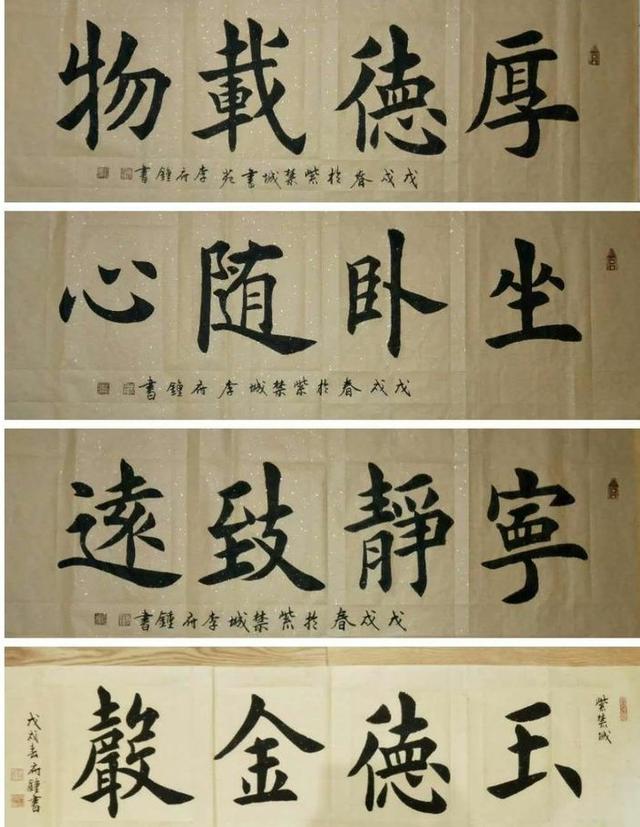 厚德載物
戊戌春於紫禁城書苑李府鍾書
坐卧随心
戊戌春於紫禁城李府鍾書
寧靜致遠
戊戌春於紫禁城李府鍾書
紫禁城
玉德金聲
戊戌春府鍾書